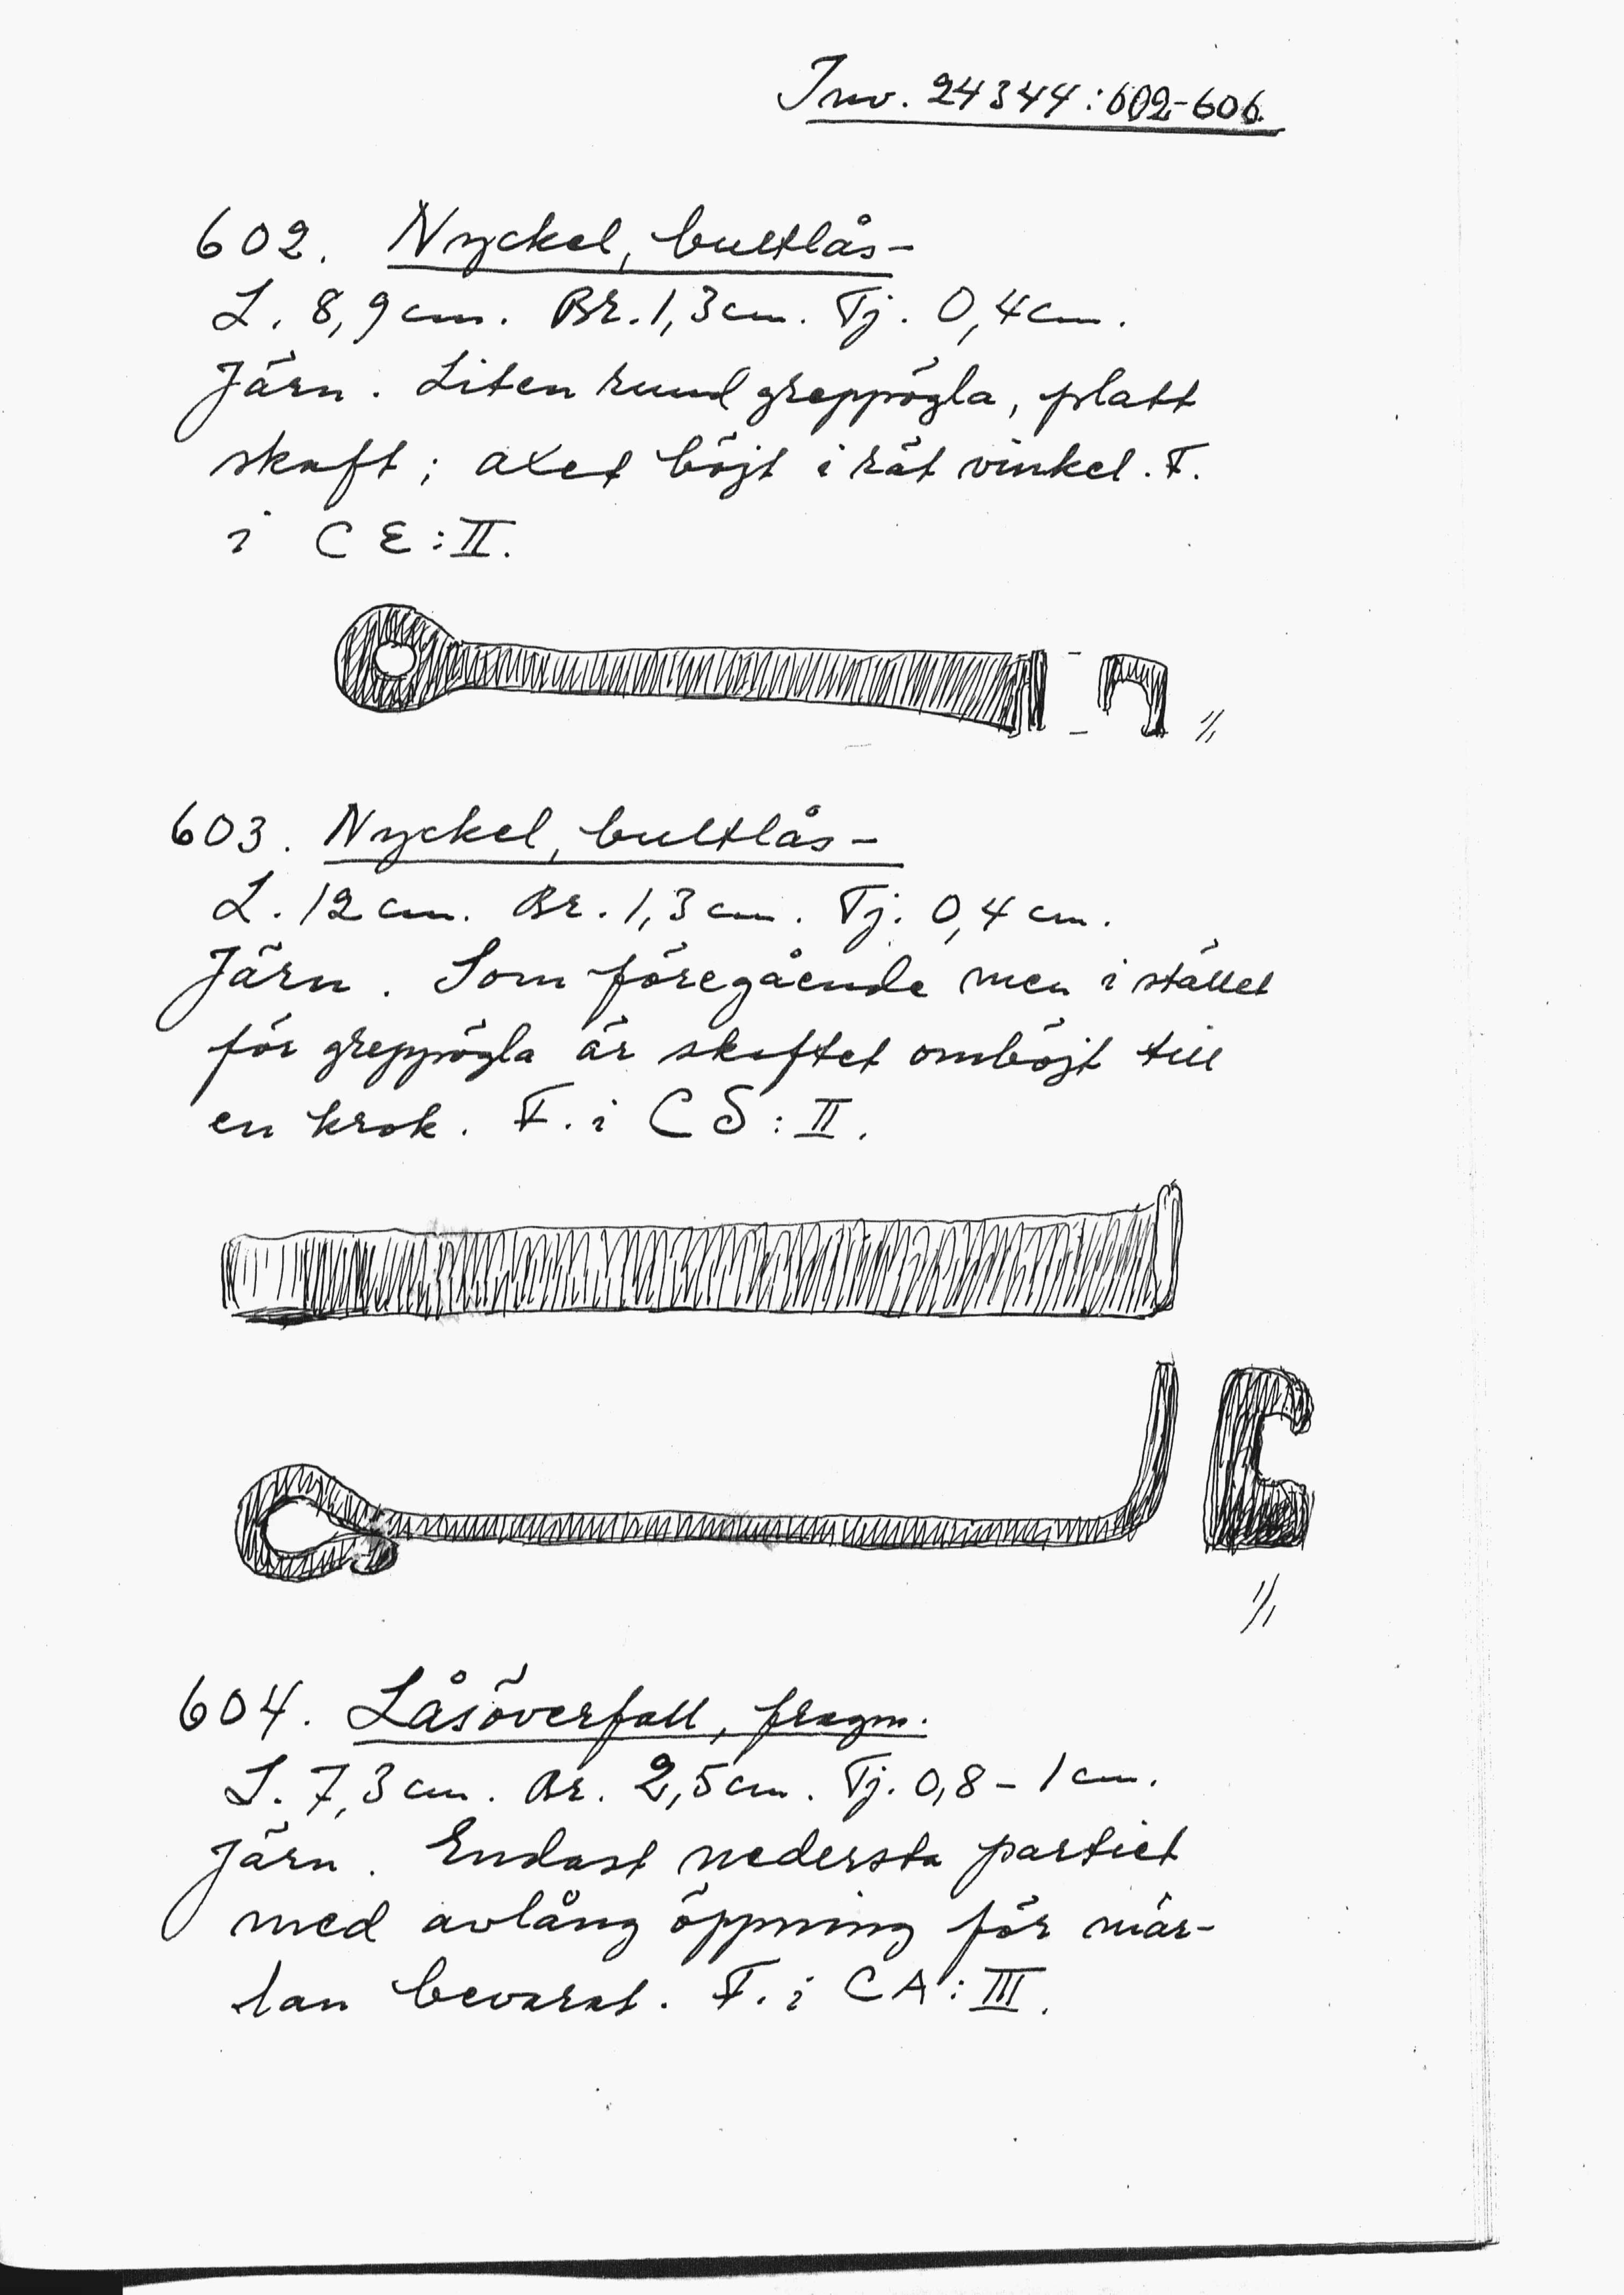 Inv. 24344:602-606
602. Nyckel, bultlås-
L. 8,9 cm. Br. 1,3 cm. Tj. 0,4 cm.
Järn. Liten rund greppögla, platt
skaft; axet böjt i rät vinkel. F.
i CE:II.
1/1
603. Nyckel, bultlås-
L. 12 cm. Br. 1,3 cm. Tj. 0,4 cm.
Järn. Som föregående men i stället
för greppögla är skaftet omböjt till
en krok. F. i CS:II.
1/1
604. Låsöverfall, fragm.
L. 7,3 cm. Br. 2,5 cm. Tj. 0,8-1 cm.
Järn. Endast nedersta partiet
med avlång öppning för mär-
lan bevarat. F. i CA:III.